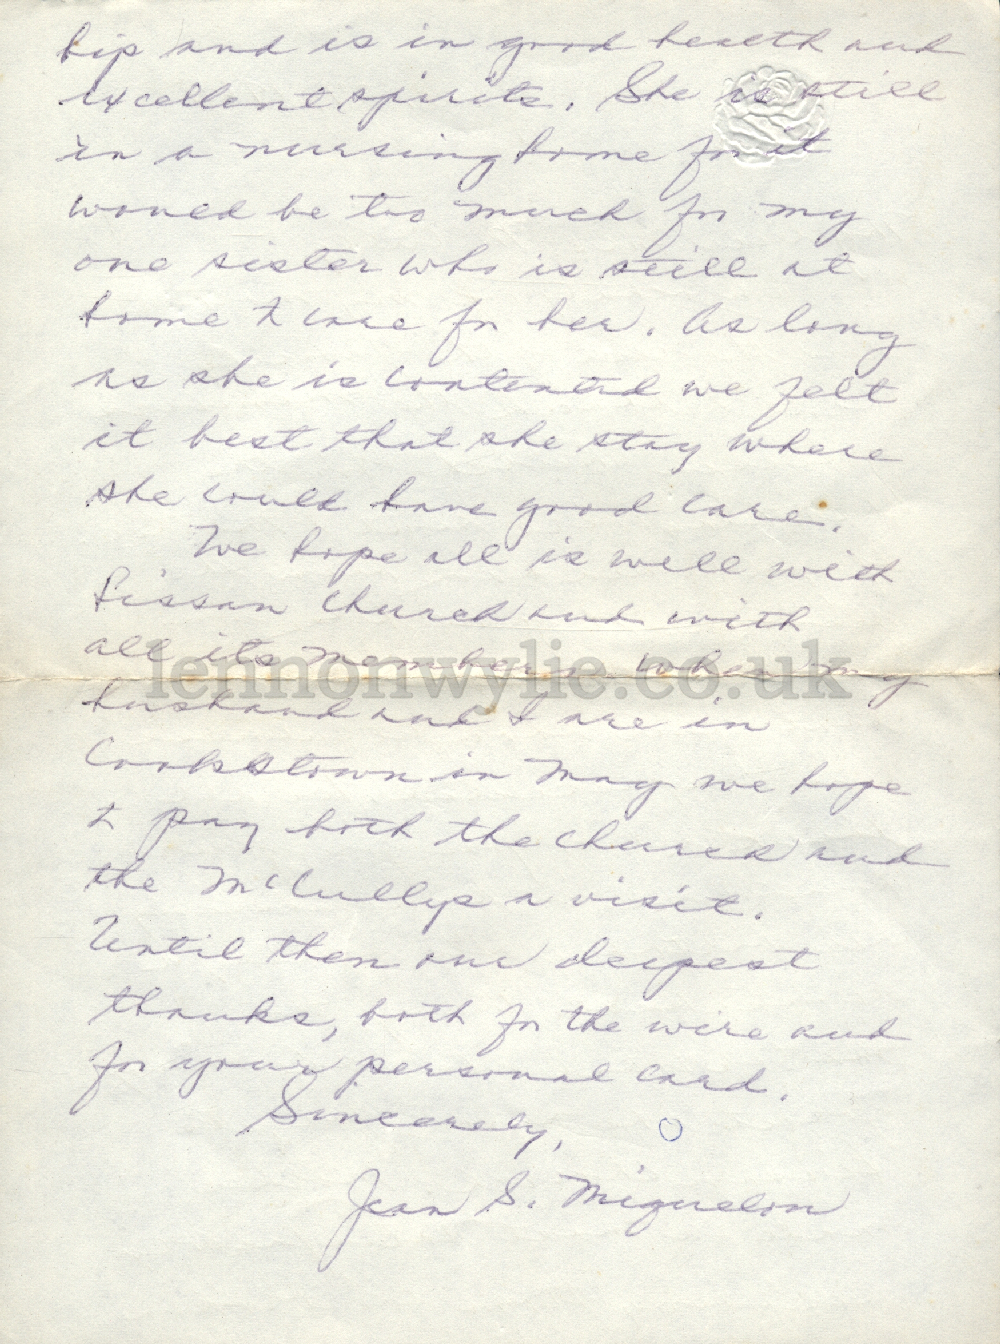 hip and is in good health and
excellent spirits. She is still
in a nursing home for it
would be too much for my
one sister who is still at
home to care for her. As long
as she is contented we felt
it best that she stay where
she could have good care.
We hope all is well with
Lissan Church and with
all its members. When my
lennonwylie.co.uk
husband and I are in
Cookstown in May we hope
to pay both the church and
the McCullys a visit.
Until then our deepest
thanks, both for the wire and
for your personal card.
Sincerely,
Jean S. Miquelon